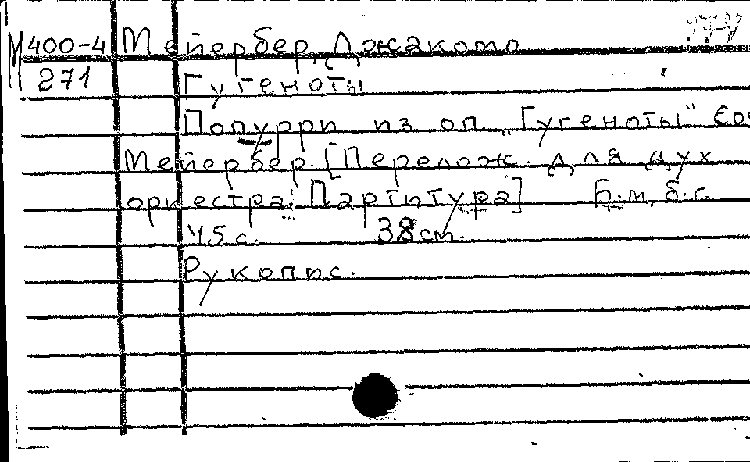 М400-4 Мейербер, Джакомо
271 Гугеноты
Попурри из оп. „Гугеноты" Соч.
Мейербер [Перелож. для дух.
оркестра: Партитура] Б.м., б.г.
45 с. 38 см.
Рукопис.